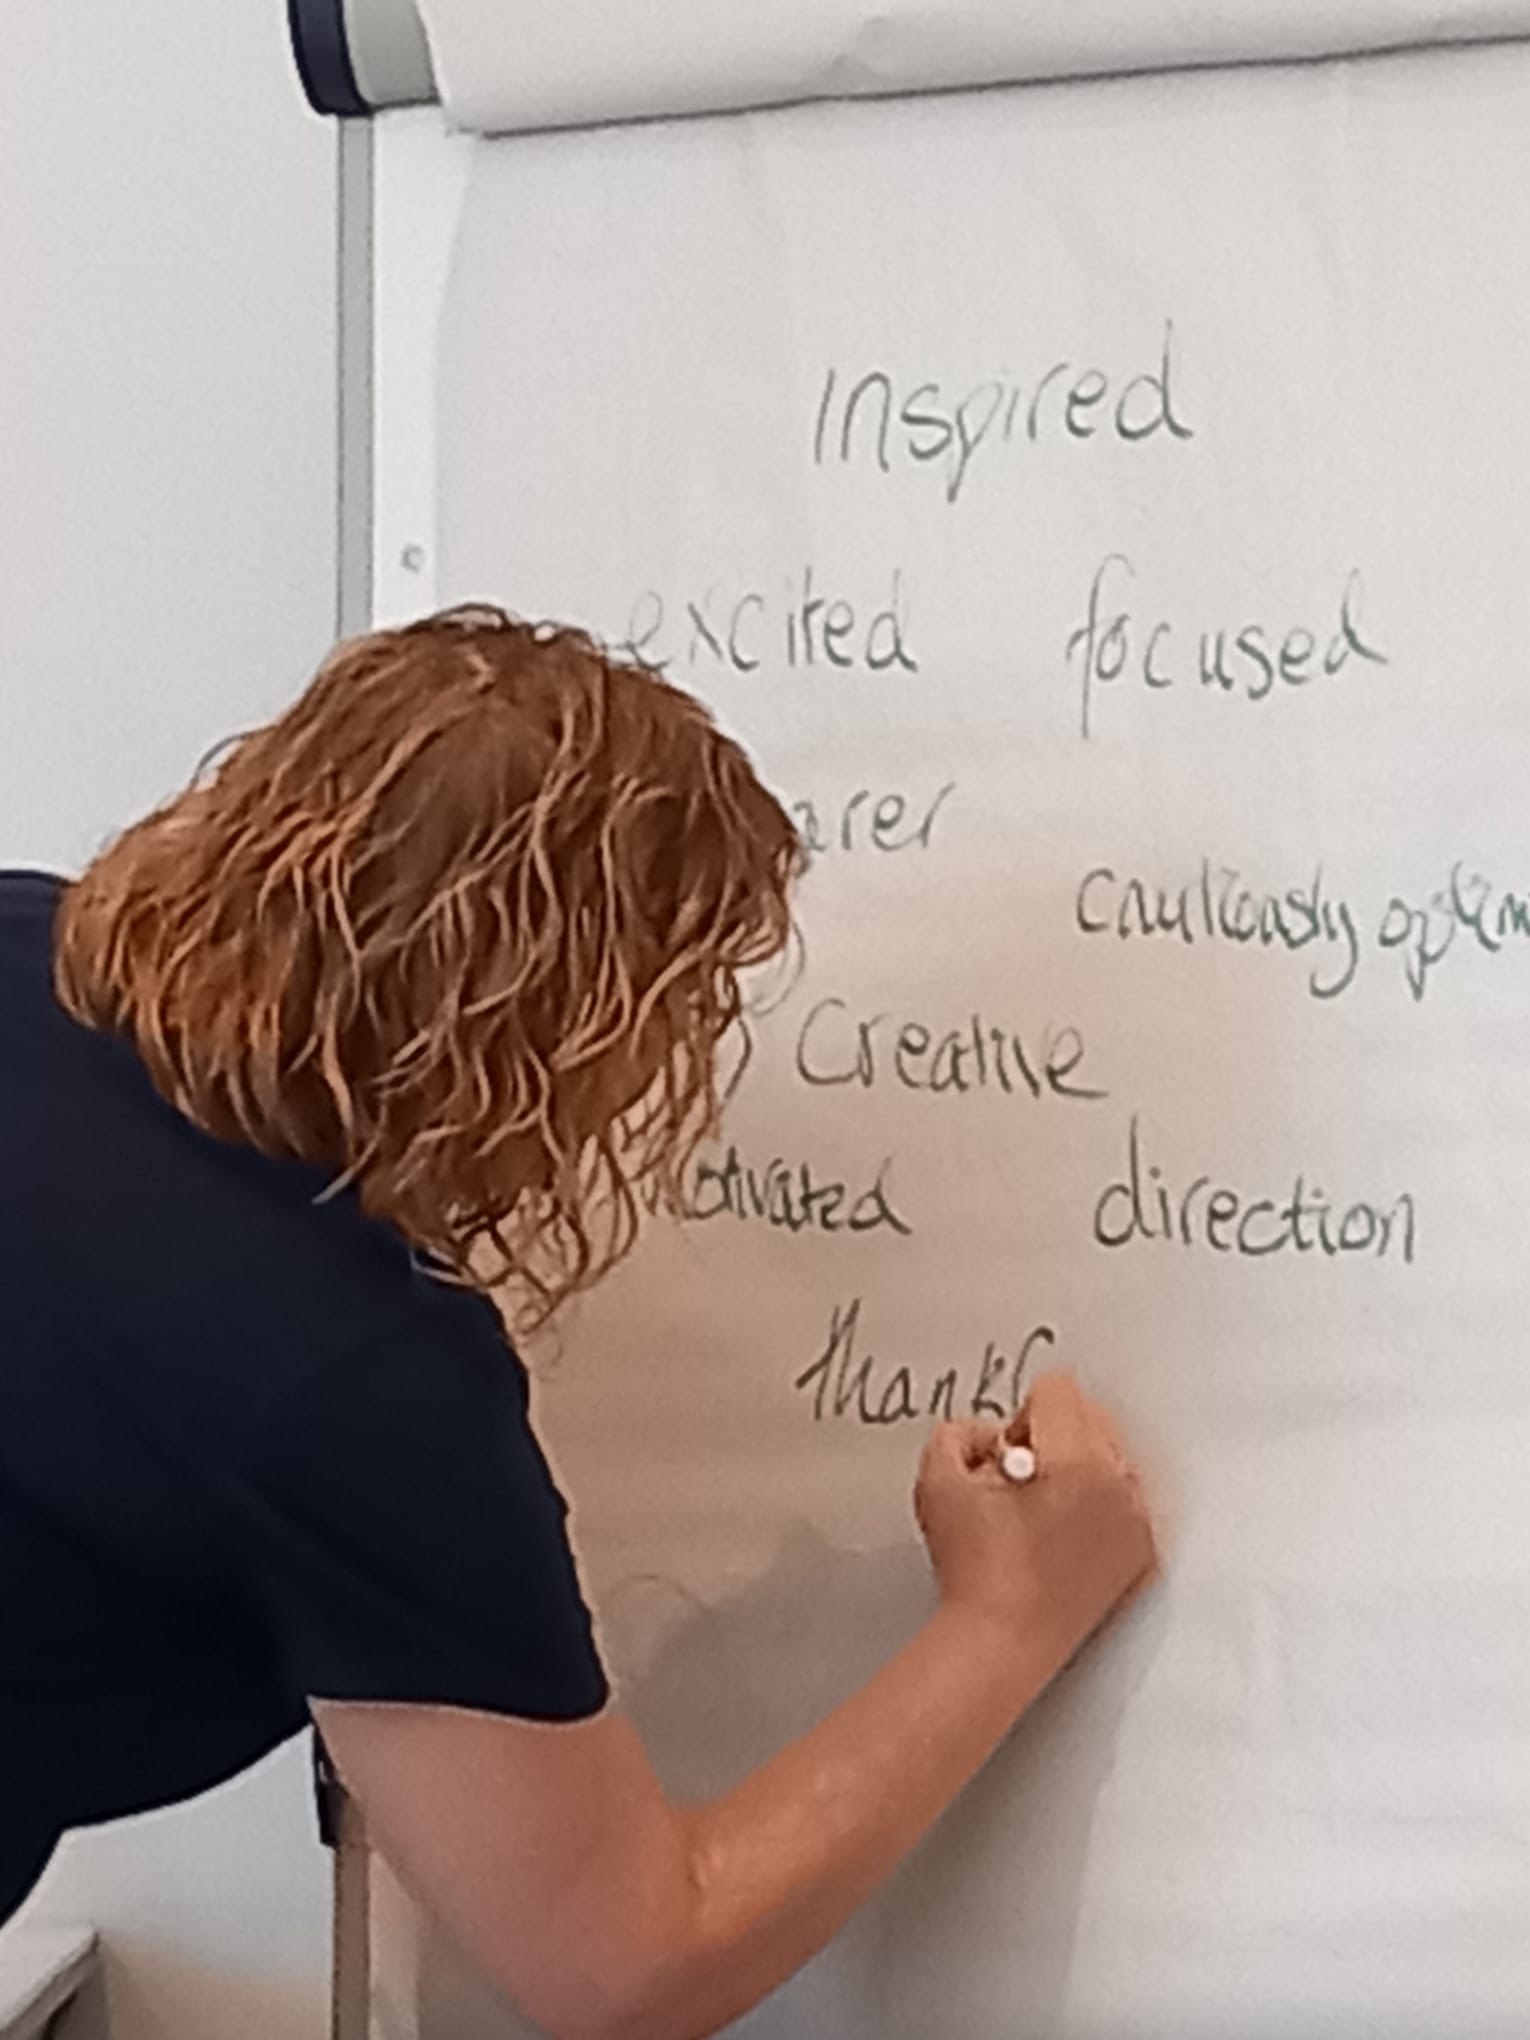 Inspired
excited focused
arer
cautiously optim
Creative
otivated direction
thankf